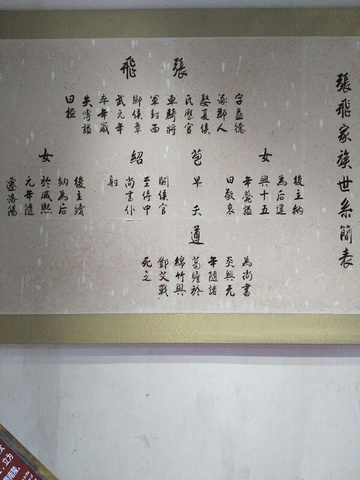 張飛家族世系簡表
張飛
字益德
涿郡人
娶夏侯
氏歷官
車騎將
軍封西
鄉侯章
武元年
卒年歲
失傳謚
曰桓
女
後主納
為后建
興十五
年薨謚
曰敬哀
苞
早夭
遵
為尚書
炎興元
年隨諸
葛瞻於
綿竹與
鄧艾戰
死之
紹
嗣侯官
至侍中
尚書僕
射
女
後主續
納為后
於咸熙
元年隨
遷洛陽
立方